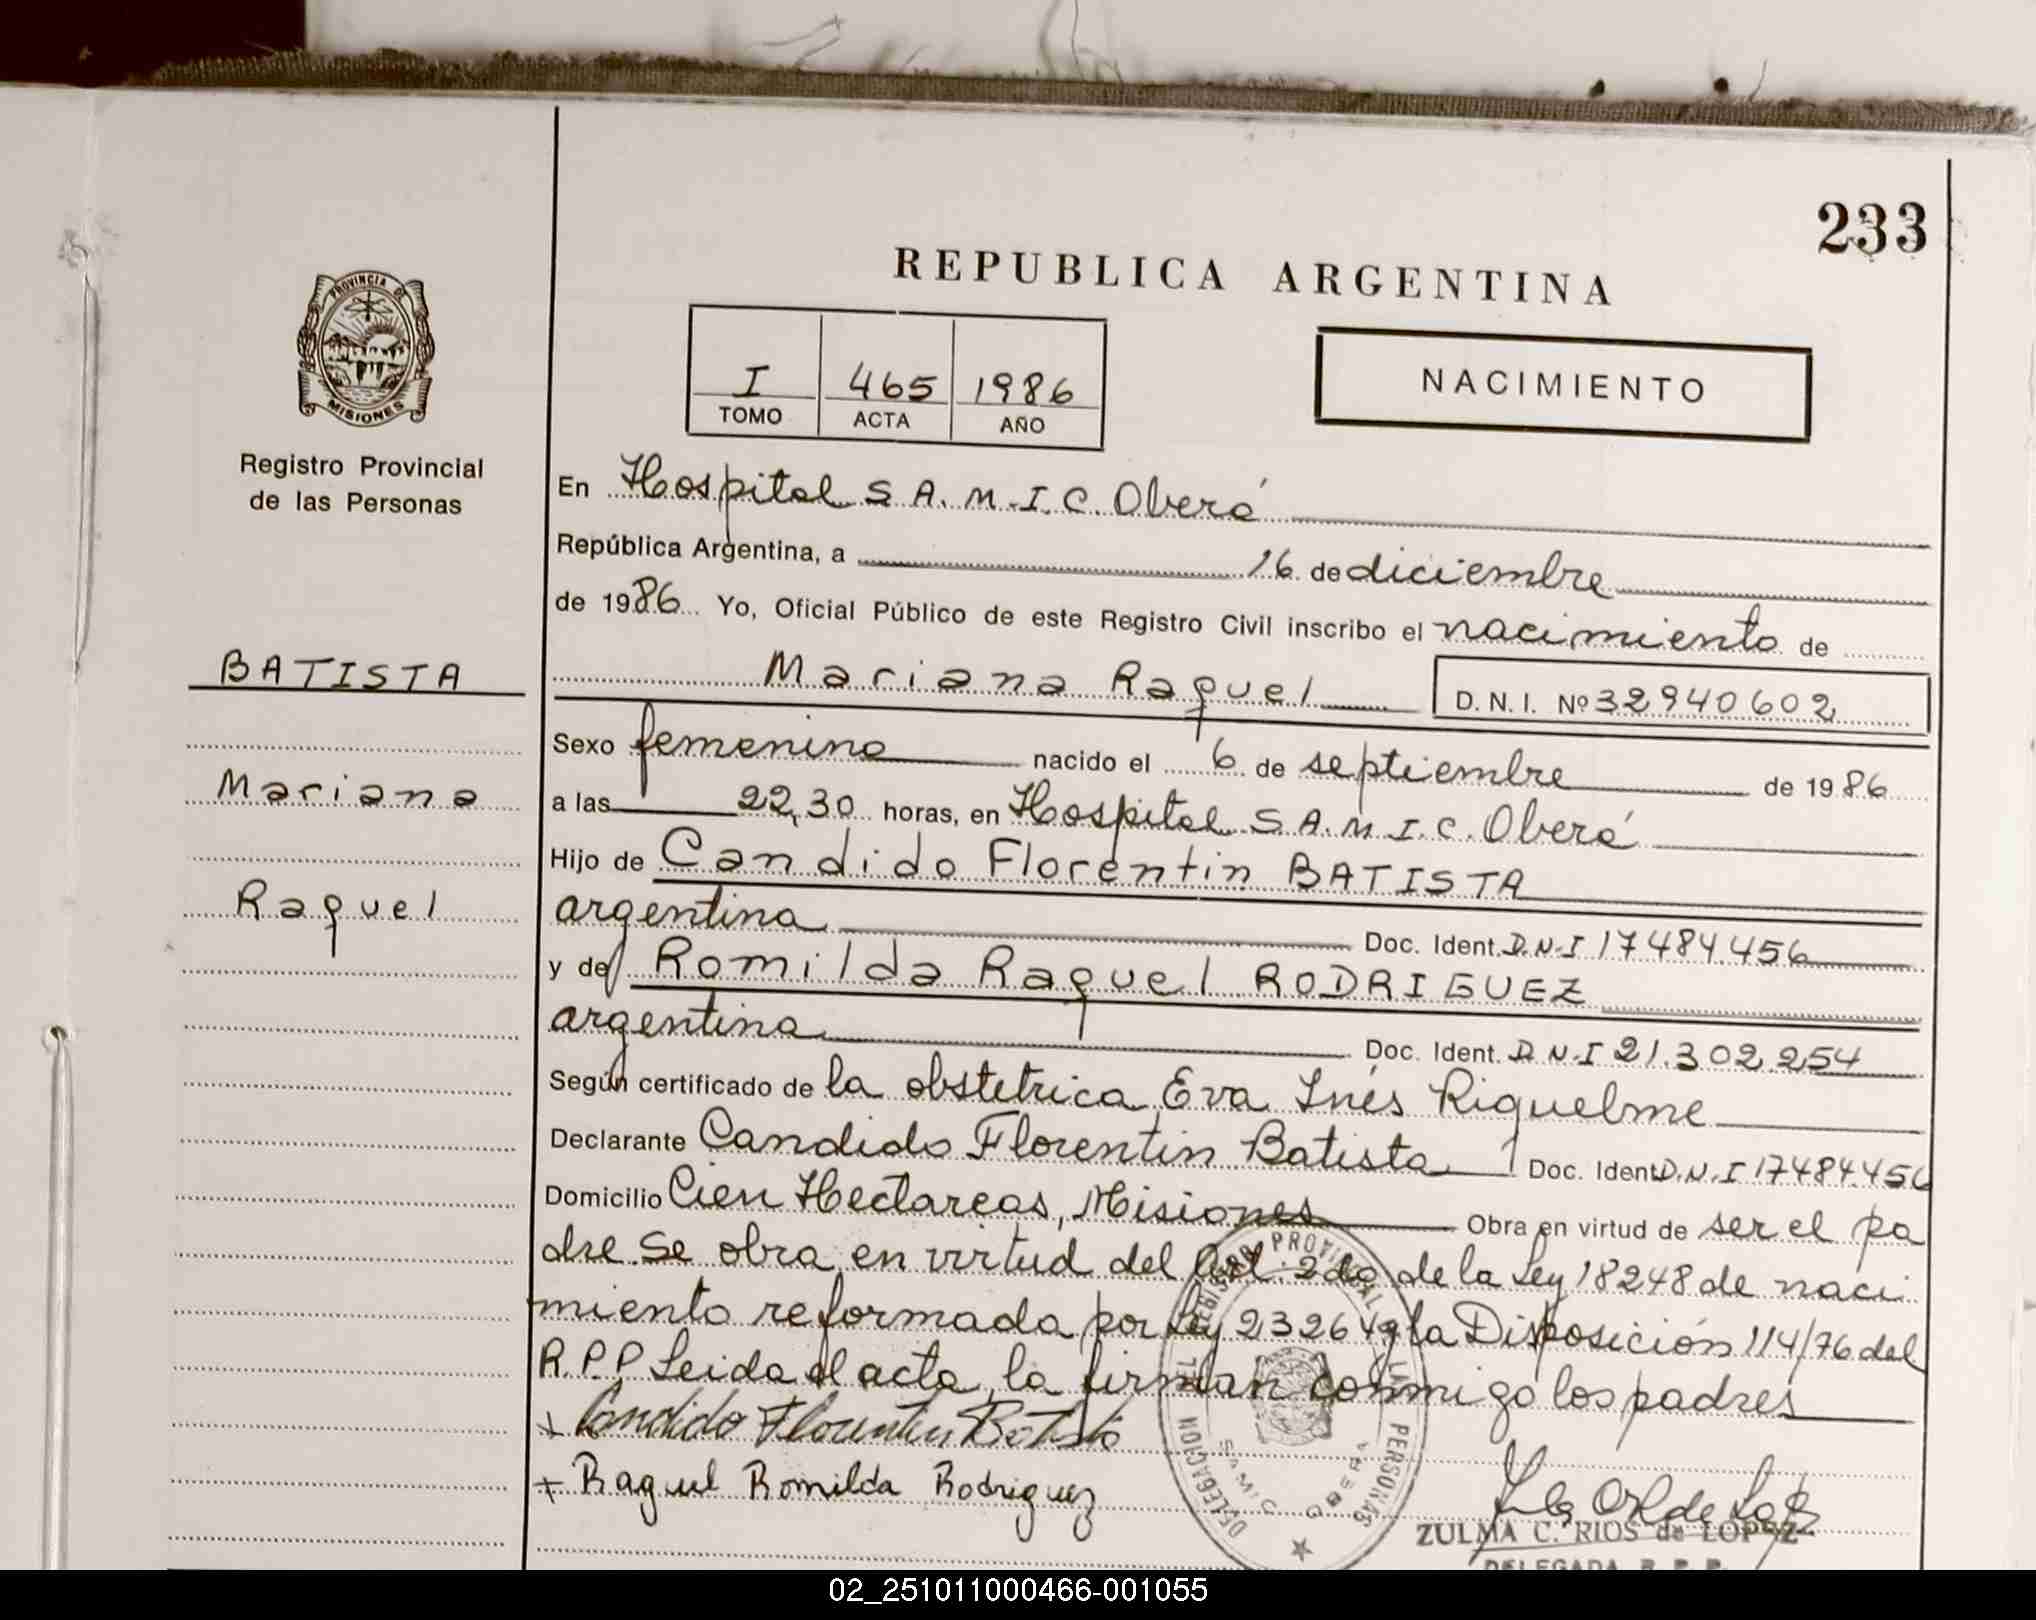 233
REPUBLICA ARGENTINA
PROVINCIA DE
MISIONES
Registro Provincial
de las Personas
I 465 1986
TOMO ACTA AÑO
NACIMIENTO
En Hospital S.A.M.I.C. Oberá
República Argentina, a 16 de diciembre
de 1986 Yo, Oficial Público de este Registro Civil inscribo el nacimiento de
BATISTA
Mariana Raquel D.N.I. Nº 32940602
Sexo femenino nacido el 6 de septiembre de 1986
Mariana
a las 22,30 horas, en Hospital S.A.M.I.C. Oberá
Hijo de Candido Florentin BATISTA
Raquel
argentina Doc. Ident. D.N.I 17484.456
y de Romilda Raquel RODRIGUEZ
argentina Doc. Ident. D.N.I 21.302.254
Según certificado de la obstetrica Eva Inés Riquelme
Declarante Candido Florentin Batista Doc. Ident D.N.I 17484.456
Domicilio Cien Hectareas, Misiones Obra en virtud de ser el pa
dre. Se obra en virtud del Art. 2do de la Ley 18248 de naci
miento reformada por Ley 23264 y la Disposición 114/76 del
R.P.P. Leida el acta, la firman conmigo los padres
Candido Florentin Batista
Raquel Romilda Rodriguez
REGISTRO PROVINCIAL DE LAS PERSONAS
DELEGACION
SAMIC OBERA
ZULMA C. RIOS de LOPEZ
DELEGADA R.P.P.
02_251011000466-001055